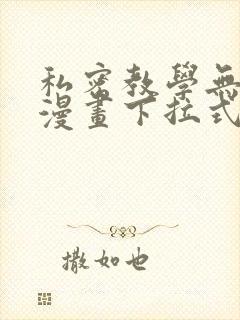 私密教學無
漫畫下拉式
撒如也